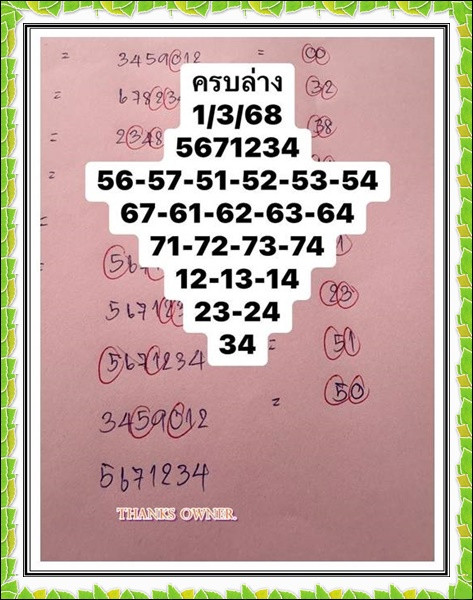 = 3459012 = 00
ครบล่าง
= 67823 32
1/3/68
= 2348 38
5671234
=
56-57-51-52-53-54
67-61-62-63-64
=
71-72-73-74 1
567
12-13-14
5671 23
23-24
5671234 34 = 51
3459012 = 50
5671234
THANKS OWNER.